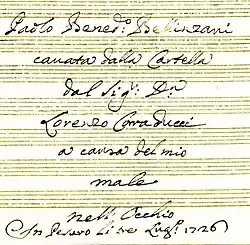 Paolo Bened: Bellinzani
cavata dalla Cartella
dal Sigr: Dn
Lorenzo Corraducci
a causa del mio
male
nell'Occhio
In Pesaro li tre Lugl: 1726